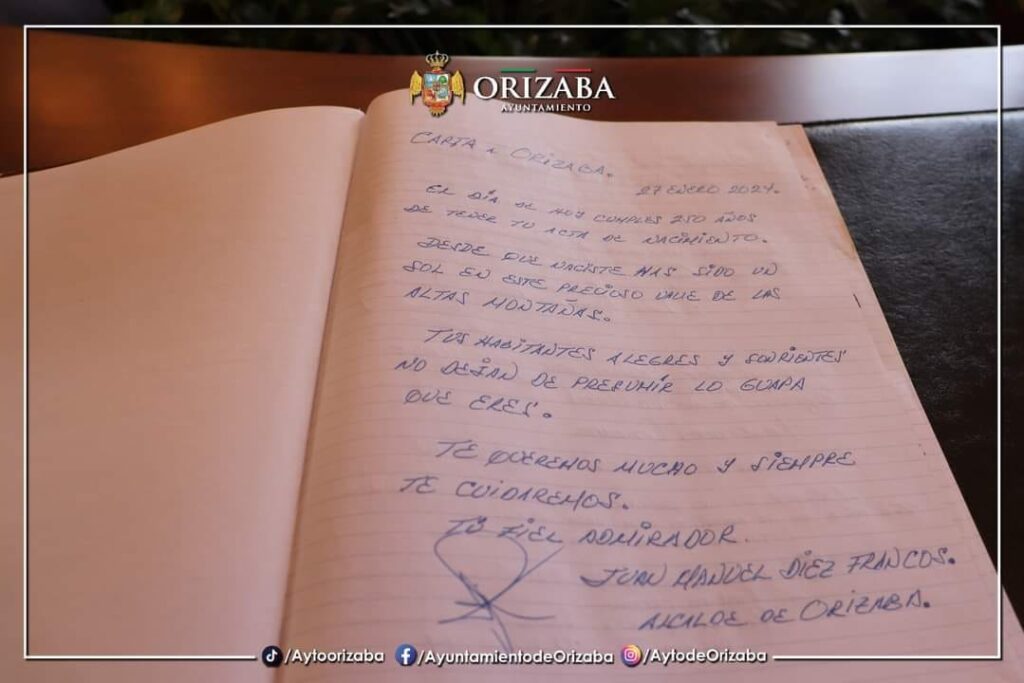 ORIZABA
AYUNTAMIENTO
CARTA A ORIZABA.
27 ENERO 2024.
EL DÍA DE HOY CUMPLES 250 AÑOS
DE TENER TU ACTA DE NACIMIENTO.
DESDE QUE NACISTE HAS SIDO UN
SOL EN ESTE PRECIOSO VALLE DE LAS
ALTAS MONTAÑAS.
TUS HABITANTES ALEGRES Y SONRIENTES
NO DEJAN DE PRESUMIR LO GUAPA
QUE ERES.
TE QUEREMOS MUCHO Y SIEMPRE
TE CUIDAREMOS.
TÚ FIEL ADMIRADOR.
JUAN MANUEL DIEZ FRANCOS.
ALCALDE DE ORIZABA.
/Aytoorizaba /AyuntamientodeOrizaba /AytodeOrizaba